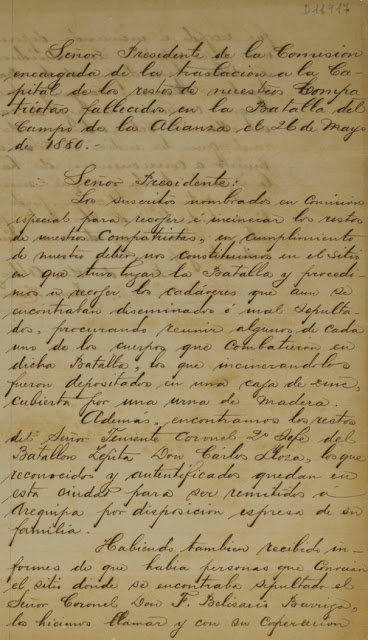 D11917
Señor Presidente de la Comision
encargada de la traslacion a la Ca-
pital de los restos de nuestros Compa-
triotas fallecidos en la Batalla del
Campo de la Alianza el 26 de Mayo
de 1880.-
Señor Presidente:
Los suscritos nombrados en Comision
especial para recojer é incinerar los restos
de nuestros Compatriotas, en cumplimiento
de nuestro deber, nos constituimos en el sitio
en que tuvo lugar la Batalla y procedi-
mos a recojer los cadáveres que aun se
encontraban diseminados ó mal sepulta-
dos, procurando reunir algunos de cada
uno de los cuerpos que combatieron en
dicha Batalla, los que incinerandolos
fueron depositados en una caja de zinc,
cubierta por una urna de madera.
Además, encontramos los restos
del Señor Teniente Coronel 2º Jefe del
Batallon Zepita Don Carlos Llosa, los que
reconocidos y autentificados quedan en
esta ciudad para ser remitidos á
Arequipa por disposicion espresa de su
familia.
Habiendo tambien recibido in-
formes de que habia personas que conocian
el sitio donde se encontraba sepultado el
Señor Coronel Don F. Belisario Barriga,
los hicimos llamar y con su coperacion